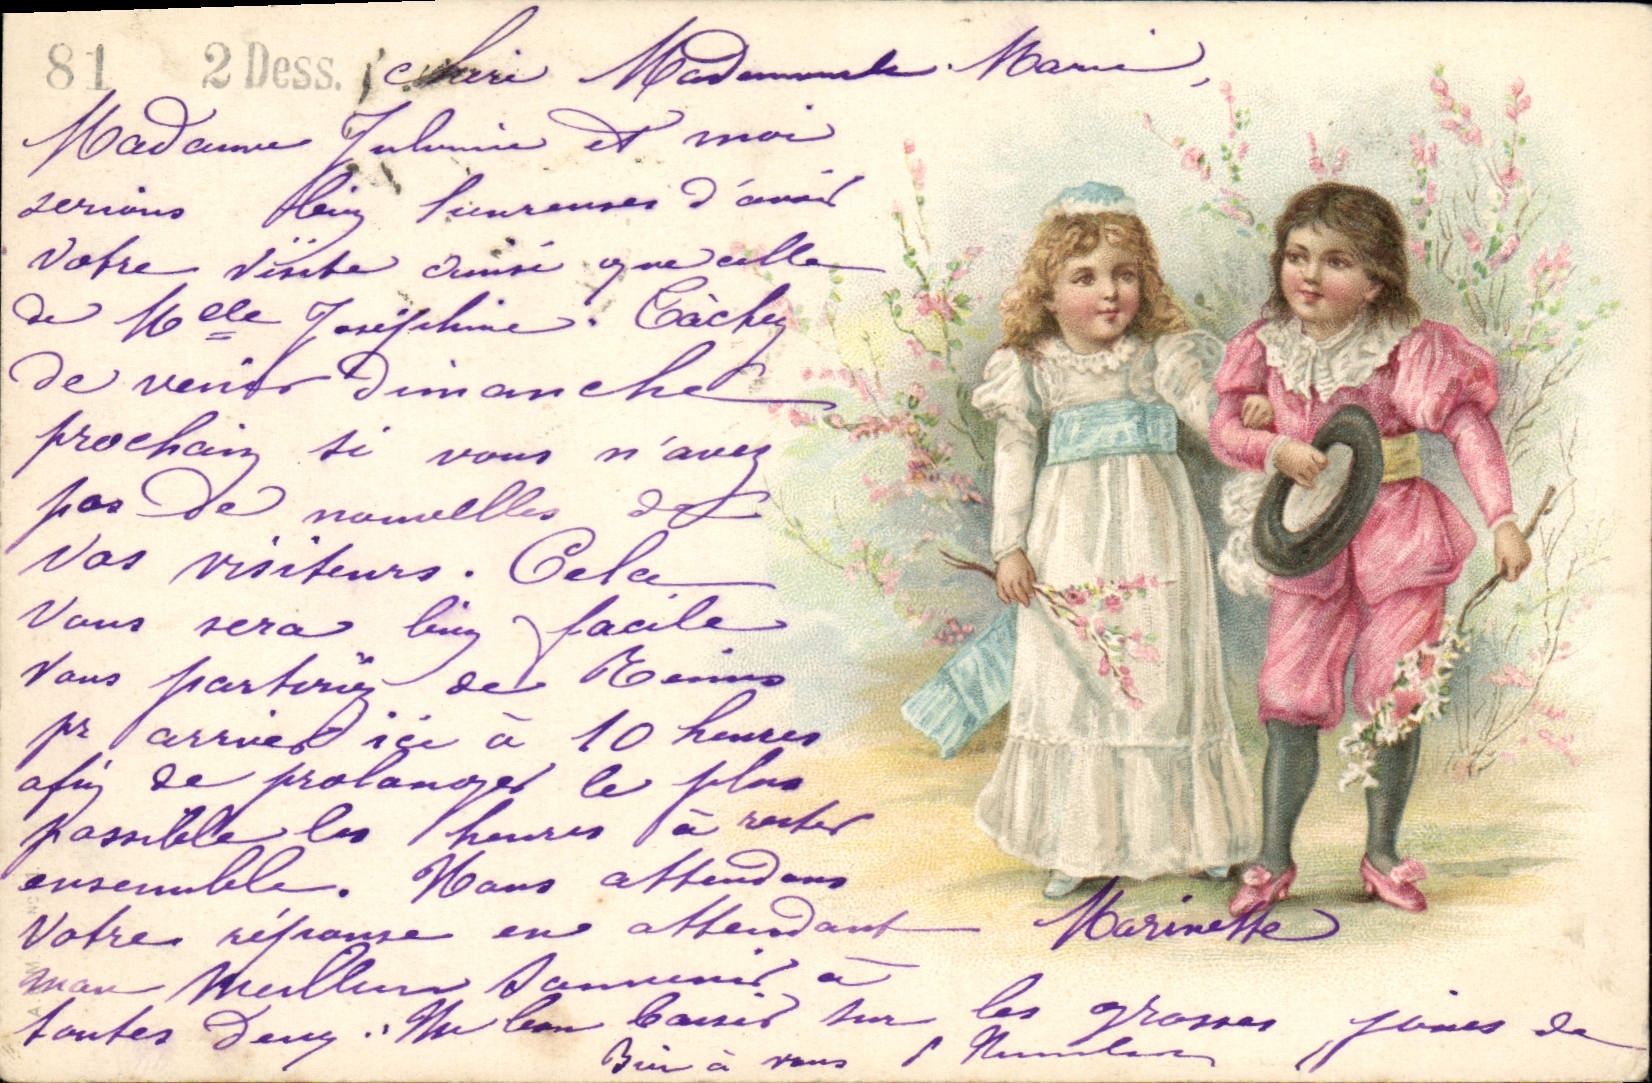 81 2 Dess. chère Mademoiselle Marie,
Madame Julienne et moi
serions bien heureuses d'avoir
votre visite ainsi que celle
de Melle Joséphine. Tàchez
de venir dimanche
prochain si vous n'avez
pas de nouvelles de
vos visiteurs. Cela
vous sera bien facile
vous partirez de Reims
pr arriver ici à 10 heures
afin de prolonger le plus
possible les heures à rester
ensemble. Nous attendons
votre réponse en attendant Marinette
mon meilleur souvenir à
toutes deux. Un bon baiser sur les grosses joues de
Bien à vous